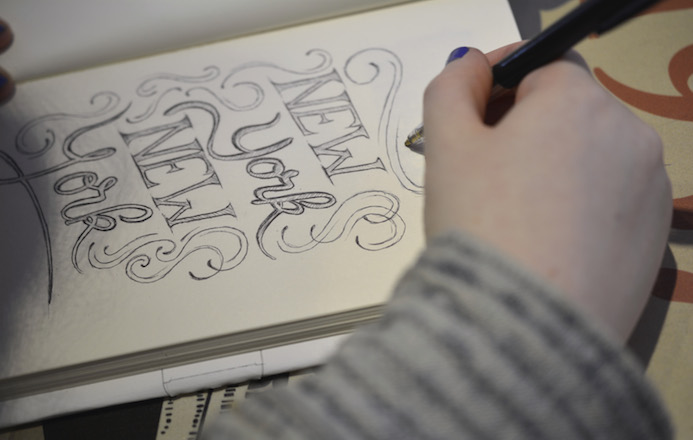 NEW
York
NEW
York